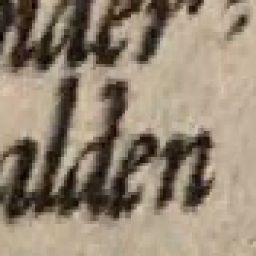 nder;
alden